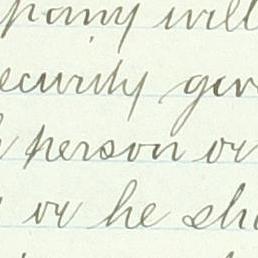 pany will
ecurity giv
person or
or he sho